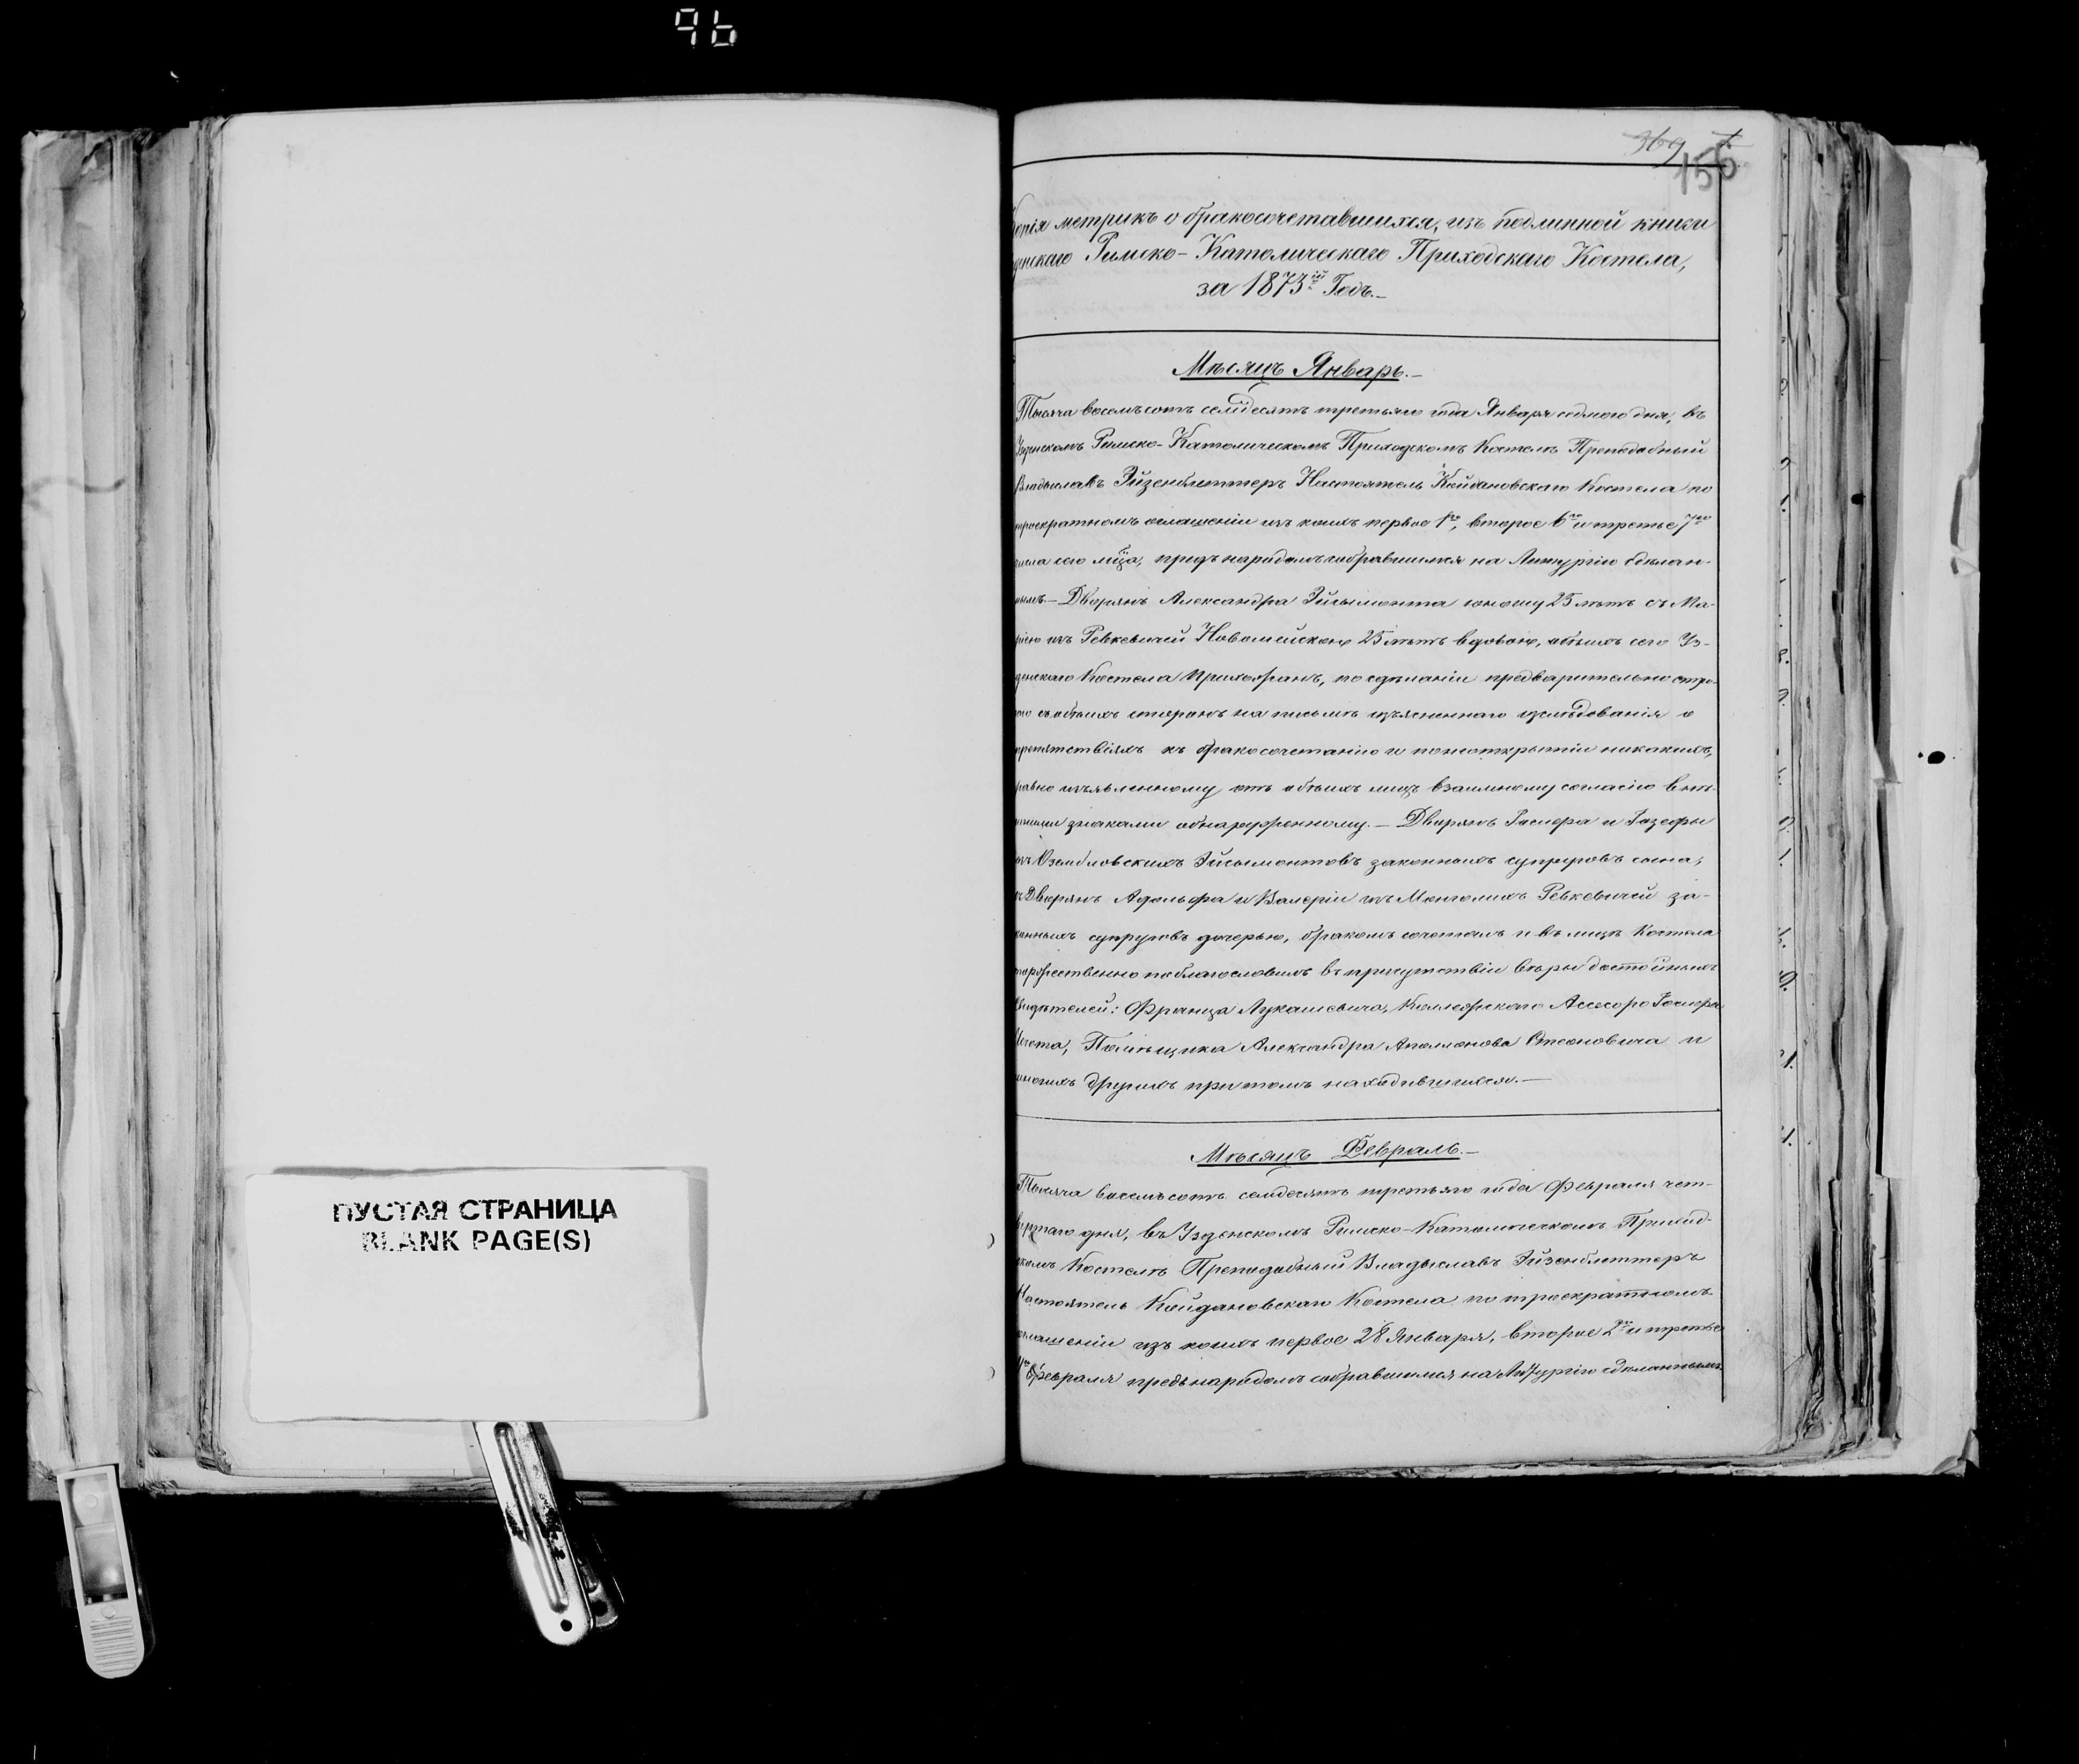 96
369
156
Копія метрикъ о бракосочетавшихся, изъ подлинной книги
Узденскаго Римско-Католическаго Приходскаго Костела,
за 1873ій Годъ.-
Мѣсяцъ Январь.-
Тысяча восемьсотъ семдесятъ третьяго года Января седмого дня, въ
Узденскомъ Римско-Католическомъ Приходскомъ Костелѣ Преподобный
Владыславъ Эйзенблеттеръ Настоятель Койдановскаго Костела по
троекратномъ оглашеніи изъ коихъ первое 1го, второе 6го и третье 7го
числа сего мца, предъ народомъ собравшимся на Литургію сдѣлан-
нымъ.- Дворянъ Александра Эйсымонта юношу 25 лѣтъ съ Ма-
ріею изъ Ревкевичей Новомейскою 25 лѣтъ вдовою, обоихъ сего Уз-
денскаго Костела прихожанъ, по сдѣланіи предварительно стро-
го съ обоихъ сторонъ на письмѣ изъясненнаго изслѣдованія о
препятствіяхъ къ бракосочетанію и по неоткрытіи никакихъ,
равно изъявленному отъ обоихъ лицъ взаимному согласію внѣ-
шними знаками обнаруженному.- Дворянъ Гаспера и Іозефы
изъ Озембловскихъ Эйсымонтовъ законныхъ супруговъ сына,
съ Дворянъ Адольфа и Валеріи изъ Ревкевичей за-
конныхъ супруговъ дочерью, бракомъ сочеталъ и въ лицѣ Костела
торжественно поблагословилъ въ присутствіи вѣры достойныхъ
свидѣтелей: Франца Лукашевича, Коллежскаго Ассесора Гаспера
Помѣщика Александра Аполлонова Стесновича и
многихъ другихъ при томъ находившихся.-
Мѣсяцъ Февраль.-
Тысяча восемьсотъ семдесятъ третьяго года Февраля чет-
вертаго дня, въ Узденскомъ Римско-Католическомъ Приход-
скомъ Костелѣ Преподобный Владыславъ Эйзенблеттеръ
Настоятель Койдановскаго Костела по троекратномъ
оглашеніи изъ коихъ первое 28 Января, второе 2го и третье
4го Февраля предъ народомъ собравшимся на Литургію сдѣланнымъ
ПУСТАЯ СТРАНИЦА
BLANK PAGE(S)